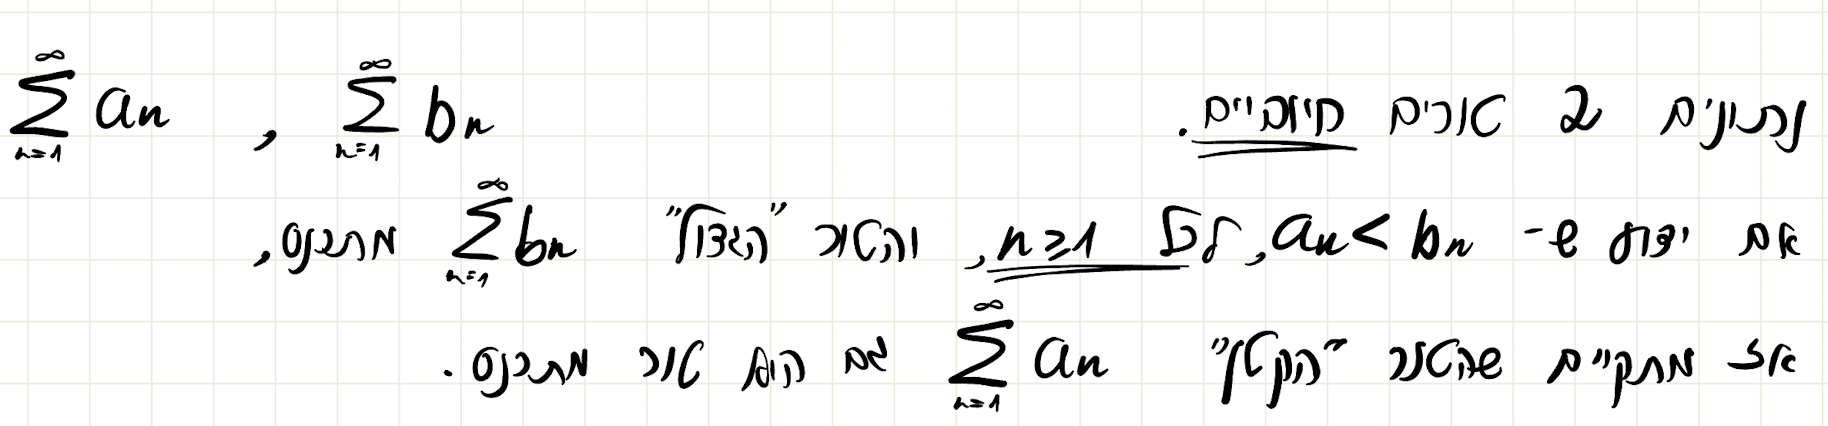 נתונים 2 טורים חיוביים. $\sum_{n=1}^{\infty} b_n$ , $\sum_{n=1}^{\infty} a_n$
אם ידוע ש- $a_n < b_n$, לכל $n \geq 1$, והטור "הגדול" $\sum_{n=1}^{\infty} b_n$ מתכנס,
אז מתקיים שהטור "הקטן" $\sum_{n=1}^{\infty} a_n$ גם הוא טור מתכנס.